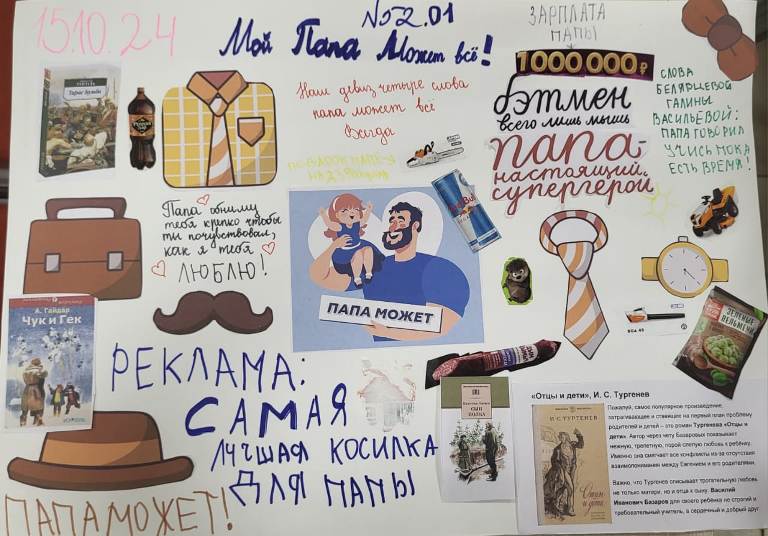 15.10.24
№52.01
Мой Папа Может всё!
ЗАРПЛАТА
ПАПЫ
1000 000₽
Наш девиз четыре слова
папа может всё
Всегда
бэтмен
всего лишь мышь
папа-
настоящий
супергерой
СЛОВА
БЕЛЯРЦЕВОЙ
ГАЛИНЫ
ВАСИЛЬЕВОЙ:
ПАПА ГОВОРИЛ
УЧИСЬ ПОКА
ЕСТЬ ВРЕМЯ!
Тарас Бульба
Папа обниму
тебя крепко чтобы
ты почувствовал,
как я тебя
ЛЮБЛЮ!
Red Bull
ПАПА МОЖЕТ
А. Гайдар
Чук и Гек
ЗЕЛЁНЫЕ
ПЕЛЬМЕНИ
РЕКЛАМА:
САМАЯ
ЛУЧШАЯ КОСИЛКА
ДЛЯ ПАПЫ
ПАПА МОЖЕТ!
СЫН
ПОЛКА
«Отцы и дети», И. С. Тургенев
И.С.ТУРГЕНЕВ
Отцы
и дети
Пожалуй, самое популярное произведение,
затрагивающее и ставящее на первый план проблему
родителей и детей – это роман Тургенева «Отцы и
дети». Автор через чету Базаровых показывает
нежную, трепетную, порой слепую любовь к ребёнку.
Именно она смягчает все конфликты из-за отсутствия
взаимопонимания между Евгением и его родителями.
Важно, что Тургенев описывает трогательную любовь
не только матери, но и отца к сыну. Василий
Иванович Базаров для своего ребёнка не строгий и
требовательный учитель, а сердечный и добрый друг.